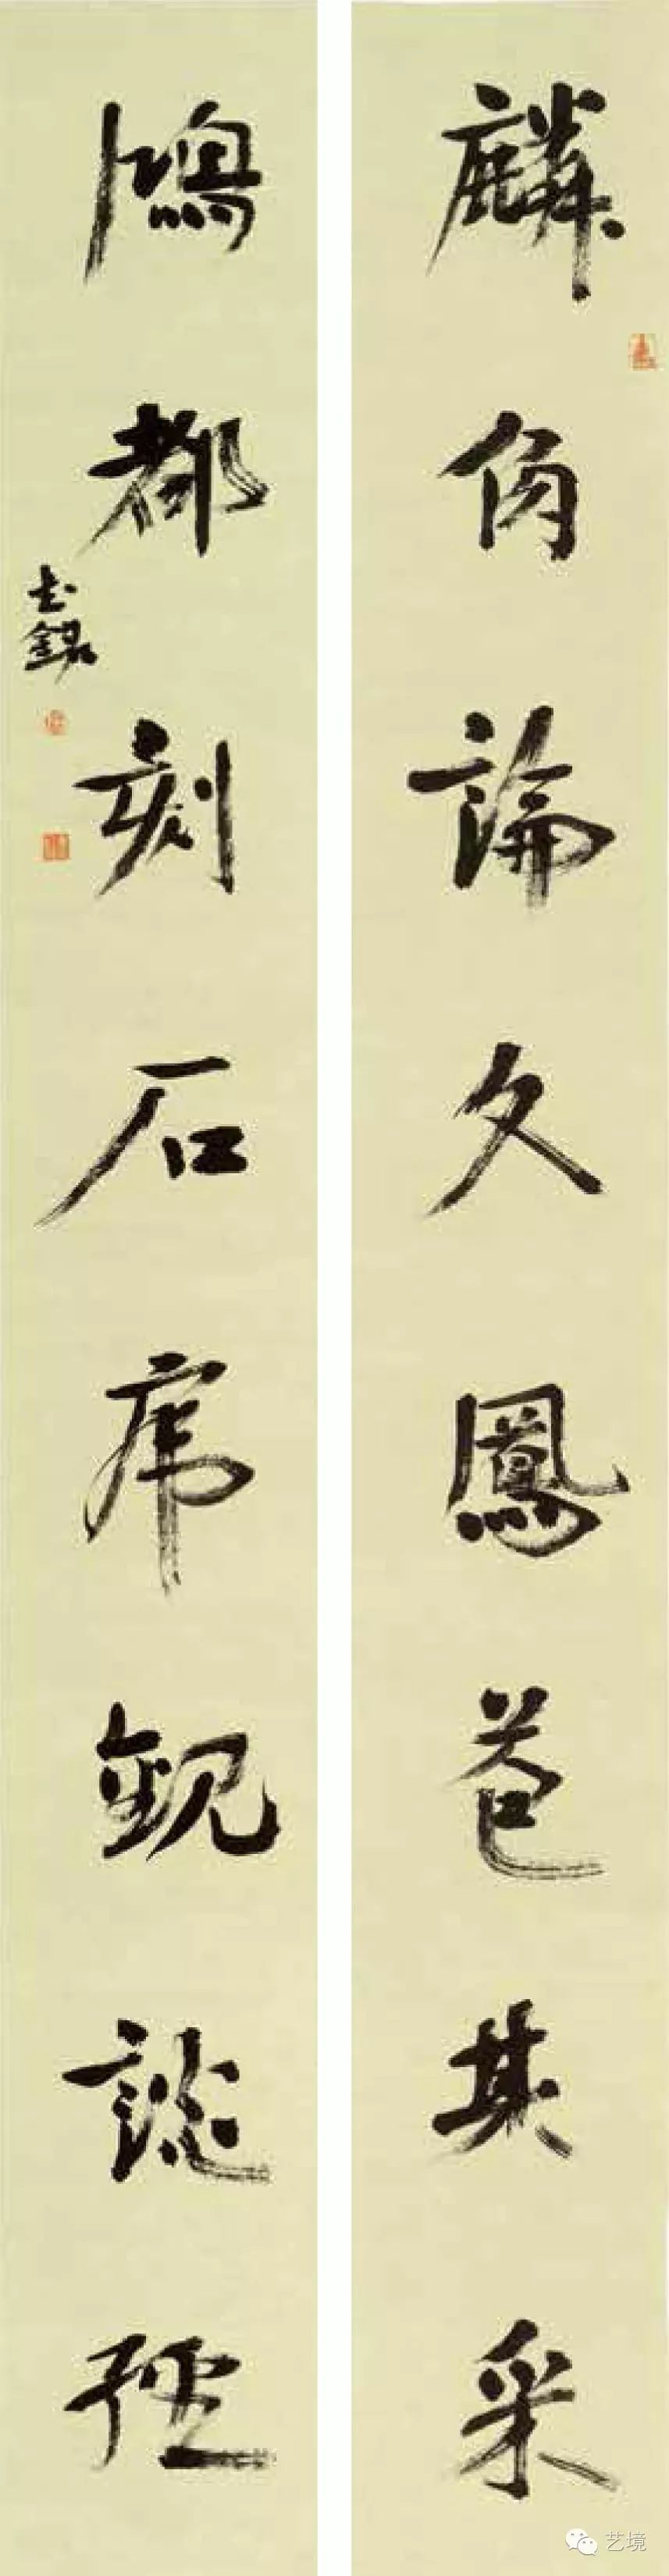 麟角論文鳳苞其采
鴻都刻石虎觀談經
志銘
艺境